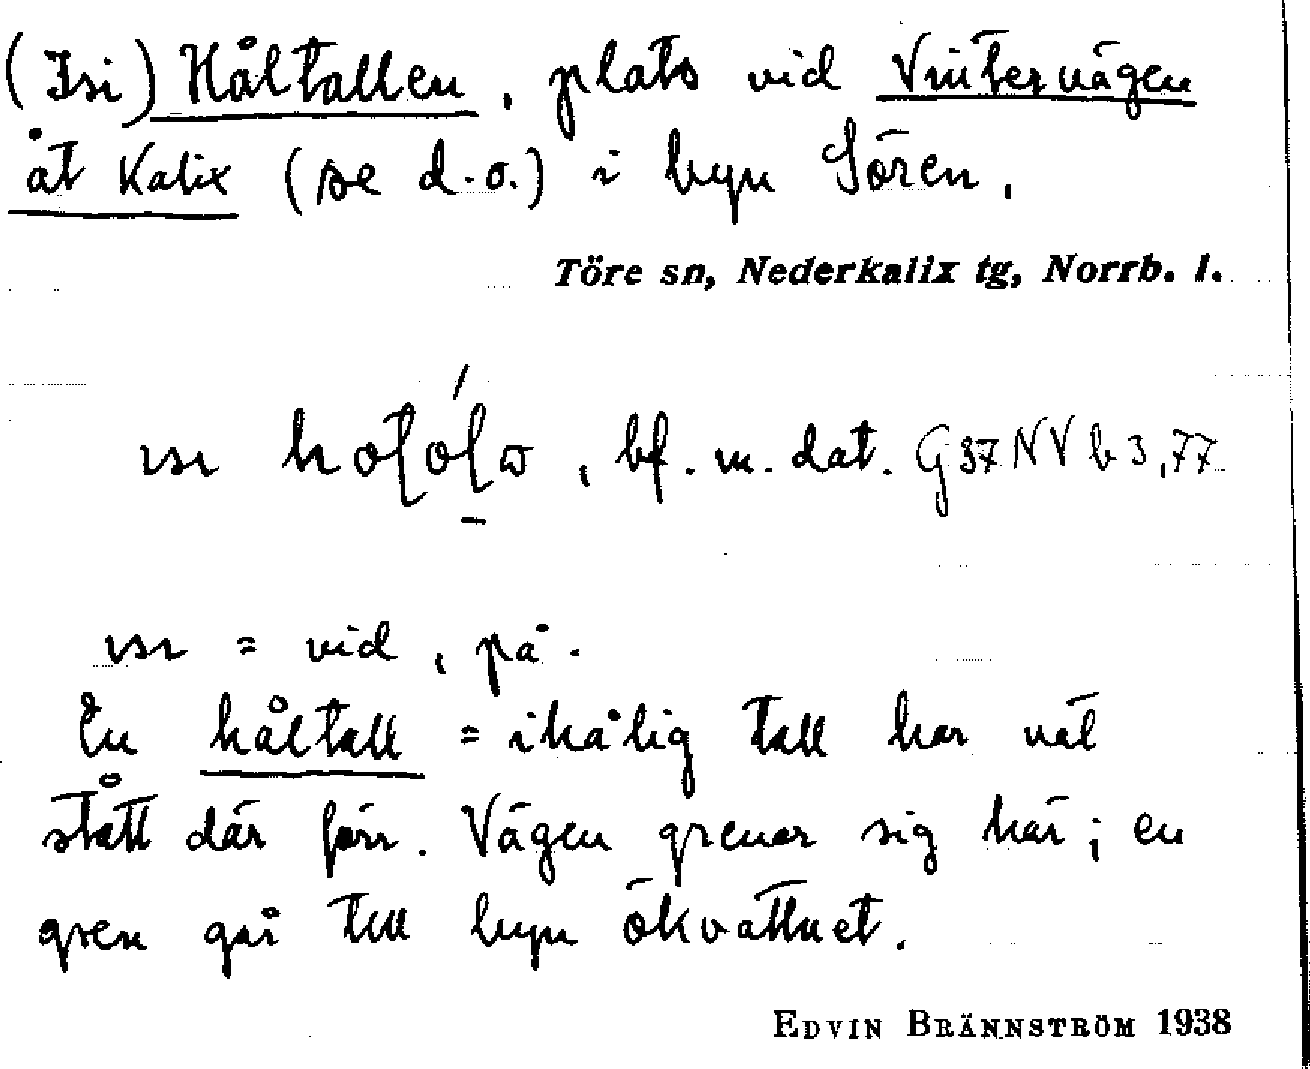 (Isi) Håltallen, plats vid Vintervägen
åt Kalix (se d.o.) i byn Sören.
Töre sn, Nederkalix tg, Norrb. l.
bf. m. dat. G37NVb3,77
= vid, på.
En håltall = ihålig tall har väl
stått där förr. Vägen grenar sig här; en
gren går till byn Ökvattnet.
EDVIN BRÄNNSTRÖM 1938